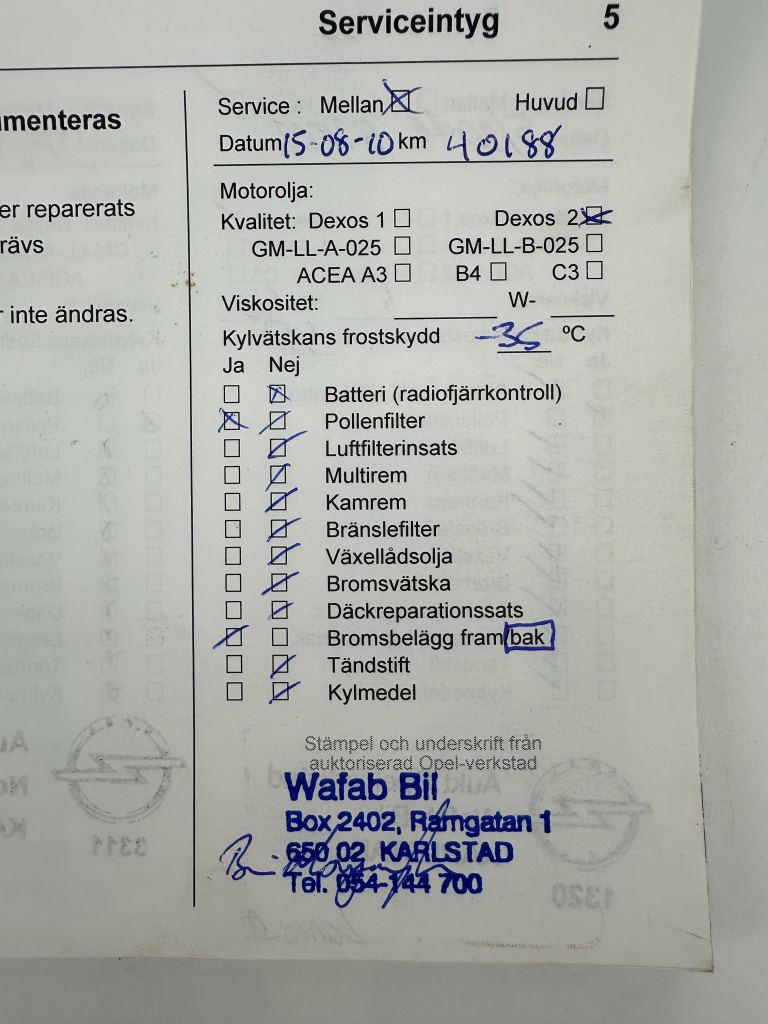 Serviceintyg 5
menteras
er reparerats
rävs
r inte ändras.
Service : Mellan Huvud
Datum 15-08-10 km 40188
Motorolja:
Kvalitet: Dexos 1 Dexos 2
GM-LL-A-025 GM-LL-B-025
ACEA A3 B4 C3
Viskositet: W-
Kylvätskans frostskydd -35 ºC
Ja Nej
Batteri (radiofjärrkontroll)
Pollenfilter
Luftfilterinsats
Multirem
Kamrem
Bränslefilter
Växellådsolja
Bromsvätska
Däckreparationssats
Bromsbelägg fram/bak
Tändstift
Kylmedel
Stämpel och underskrift från
auktoriserad Opel-verkstad
Wafab Bil
Box 2402, Ramgatan 1
650 02 KARLSTAD
Tel. 054-144 700
3311
1320